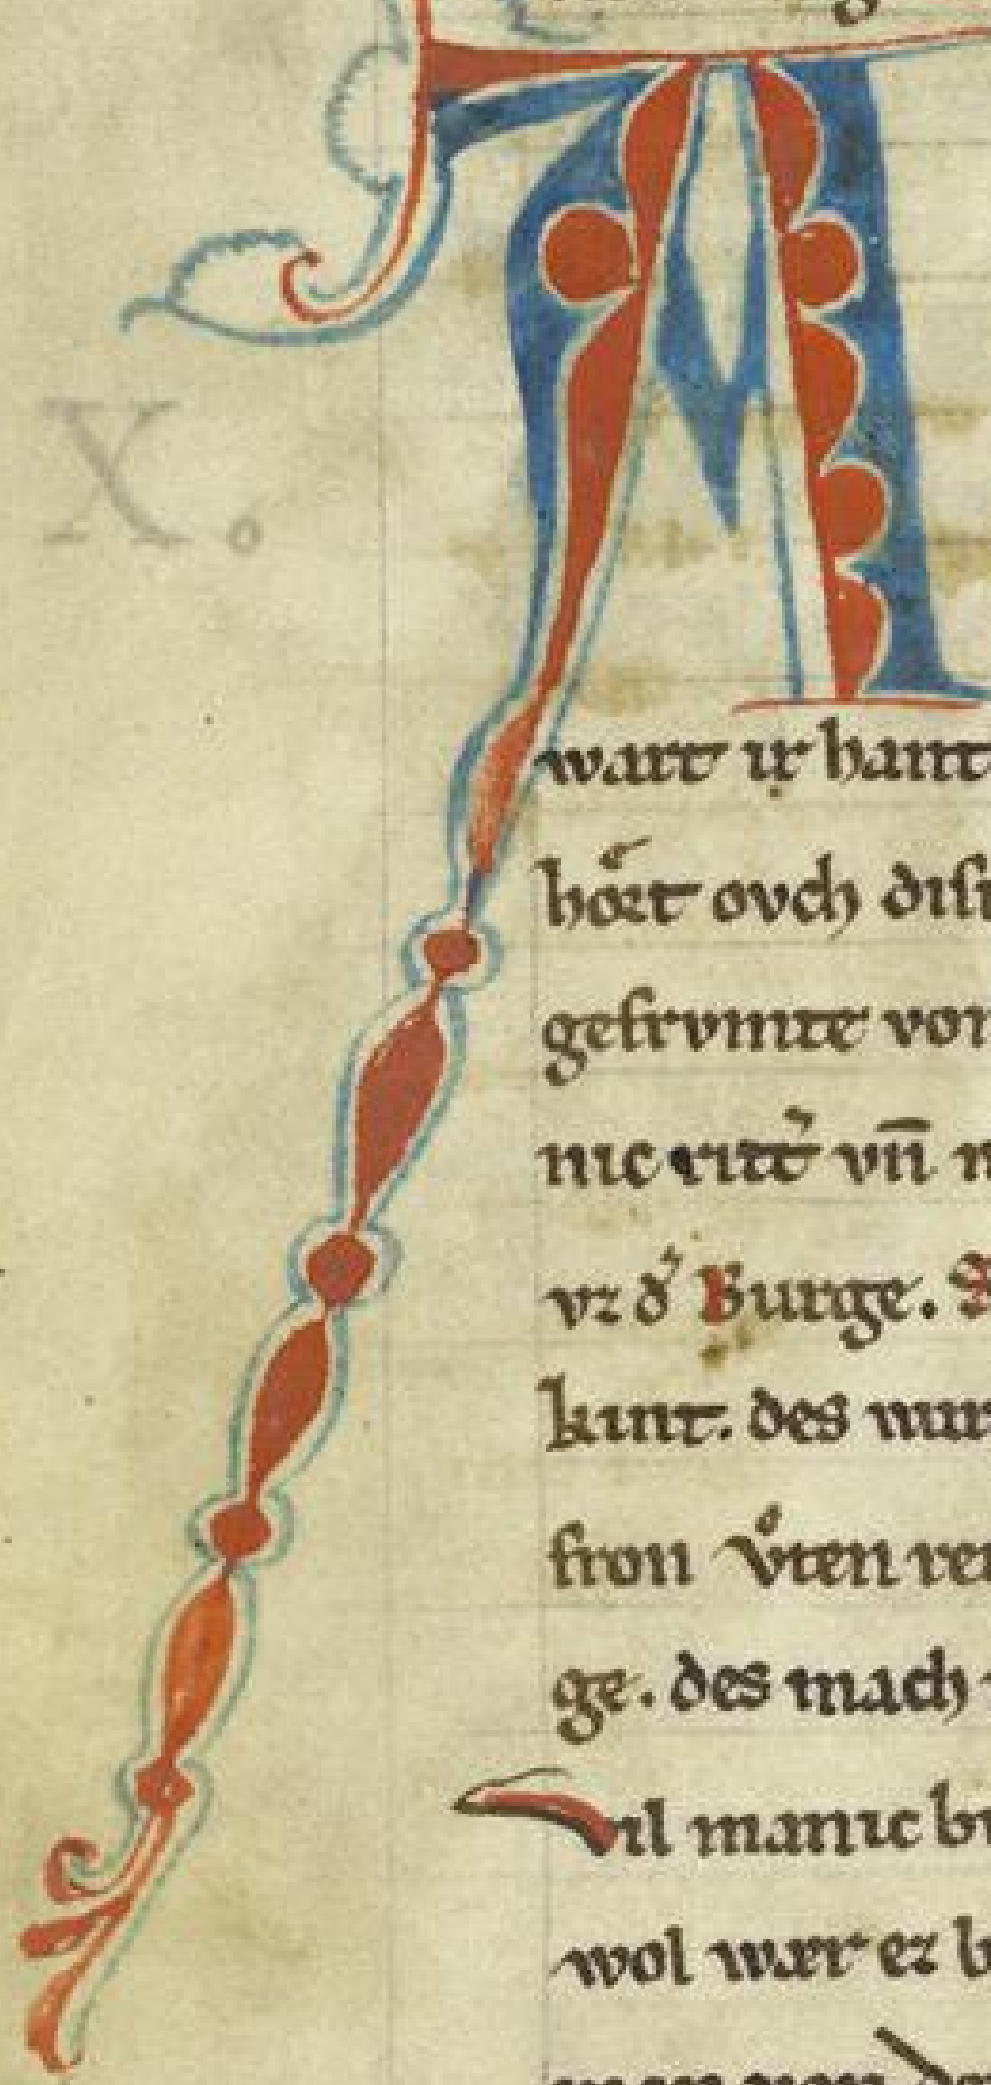 X.
A
wart ir hant
hoͤrt ovch disi
gefrvmte von
nic ritt͛ vñ m
vz d͛ Burge.
kunt. des wur
fron vͦten rei
ge. des mach
Vil manic bv
wol wær ez b